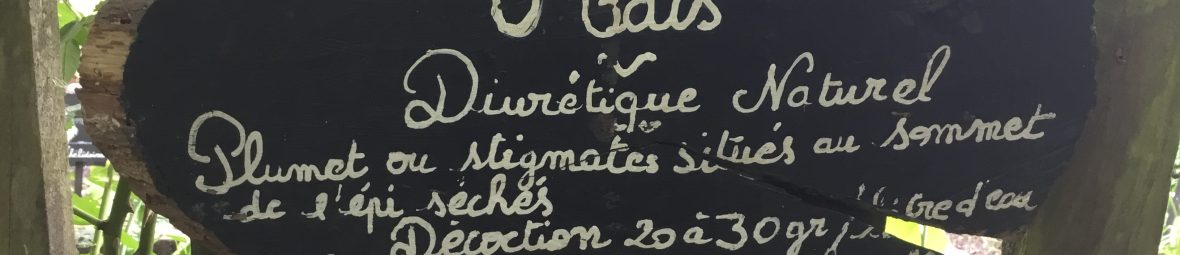 Diurétique Naturel
Plumet ou stigmates situés au sommet
de l'épi séchés
Décoction 20 à 30 gr d'eau